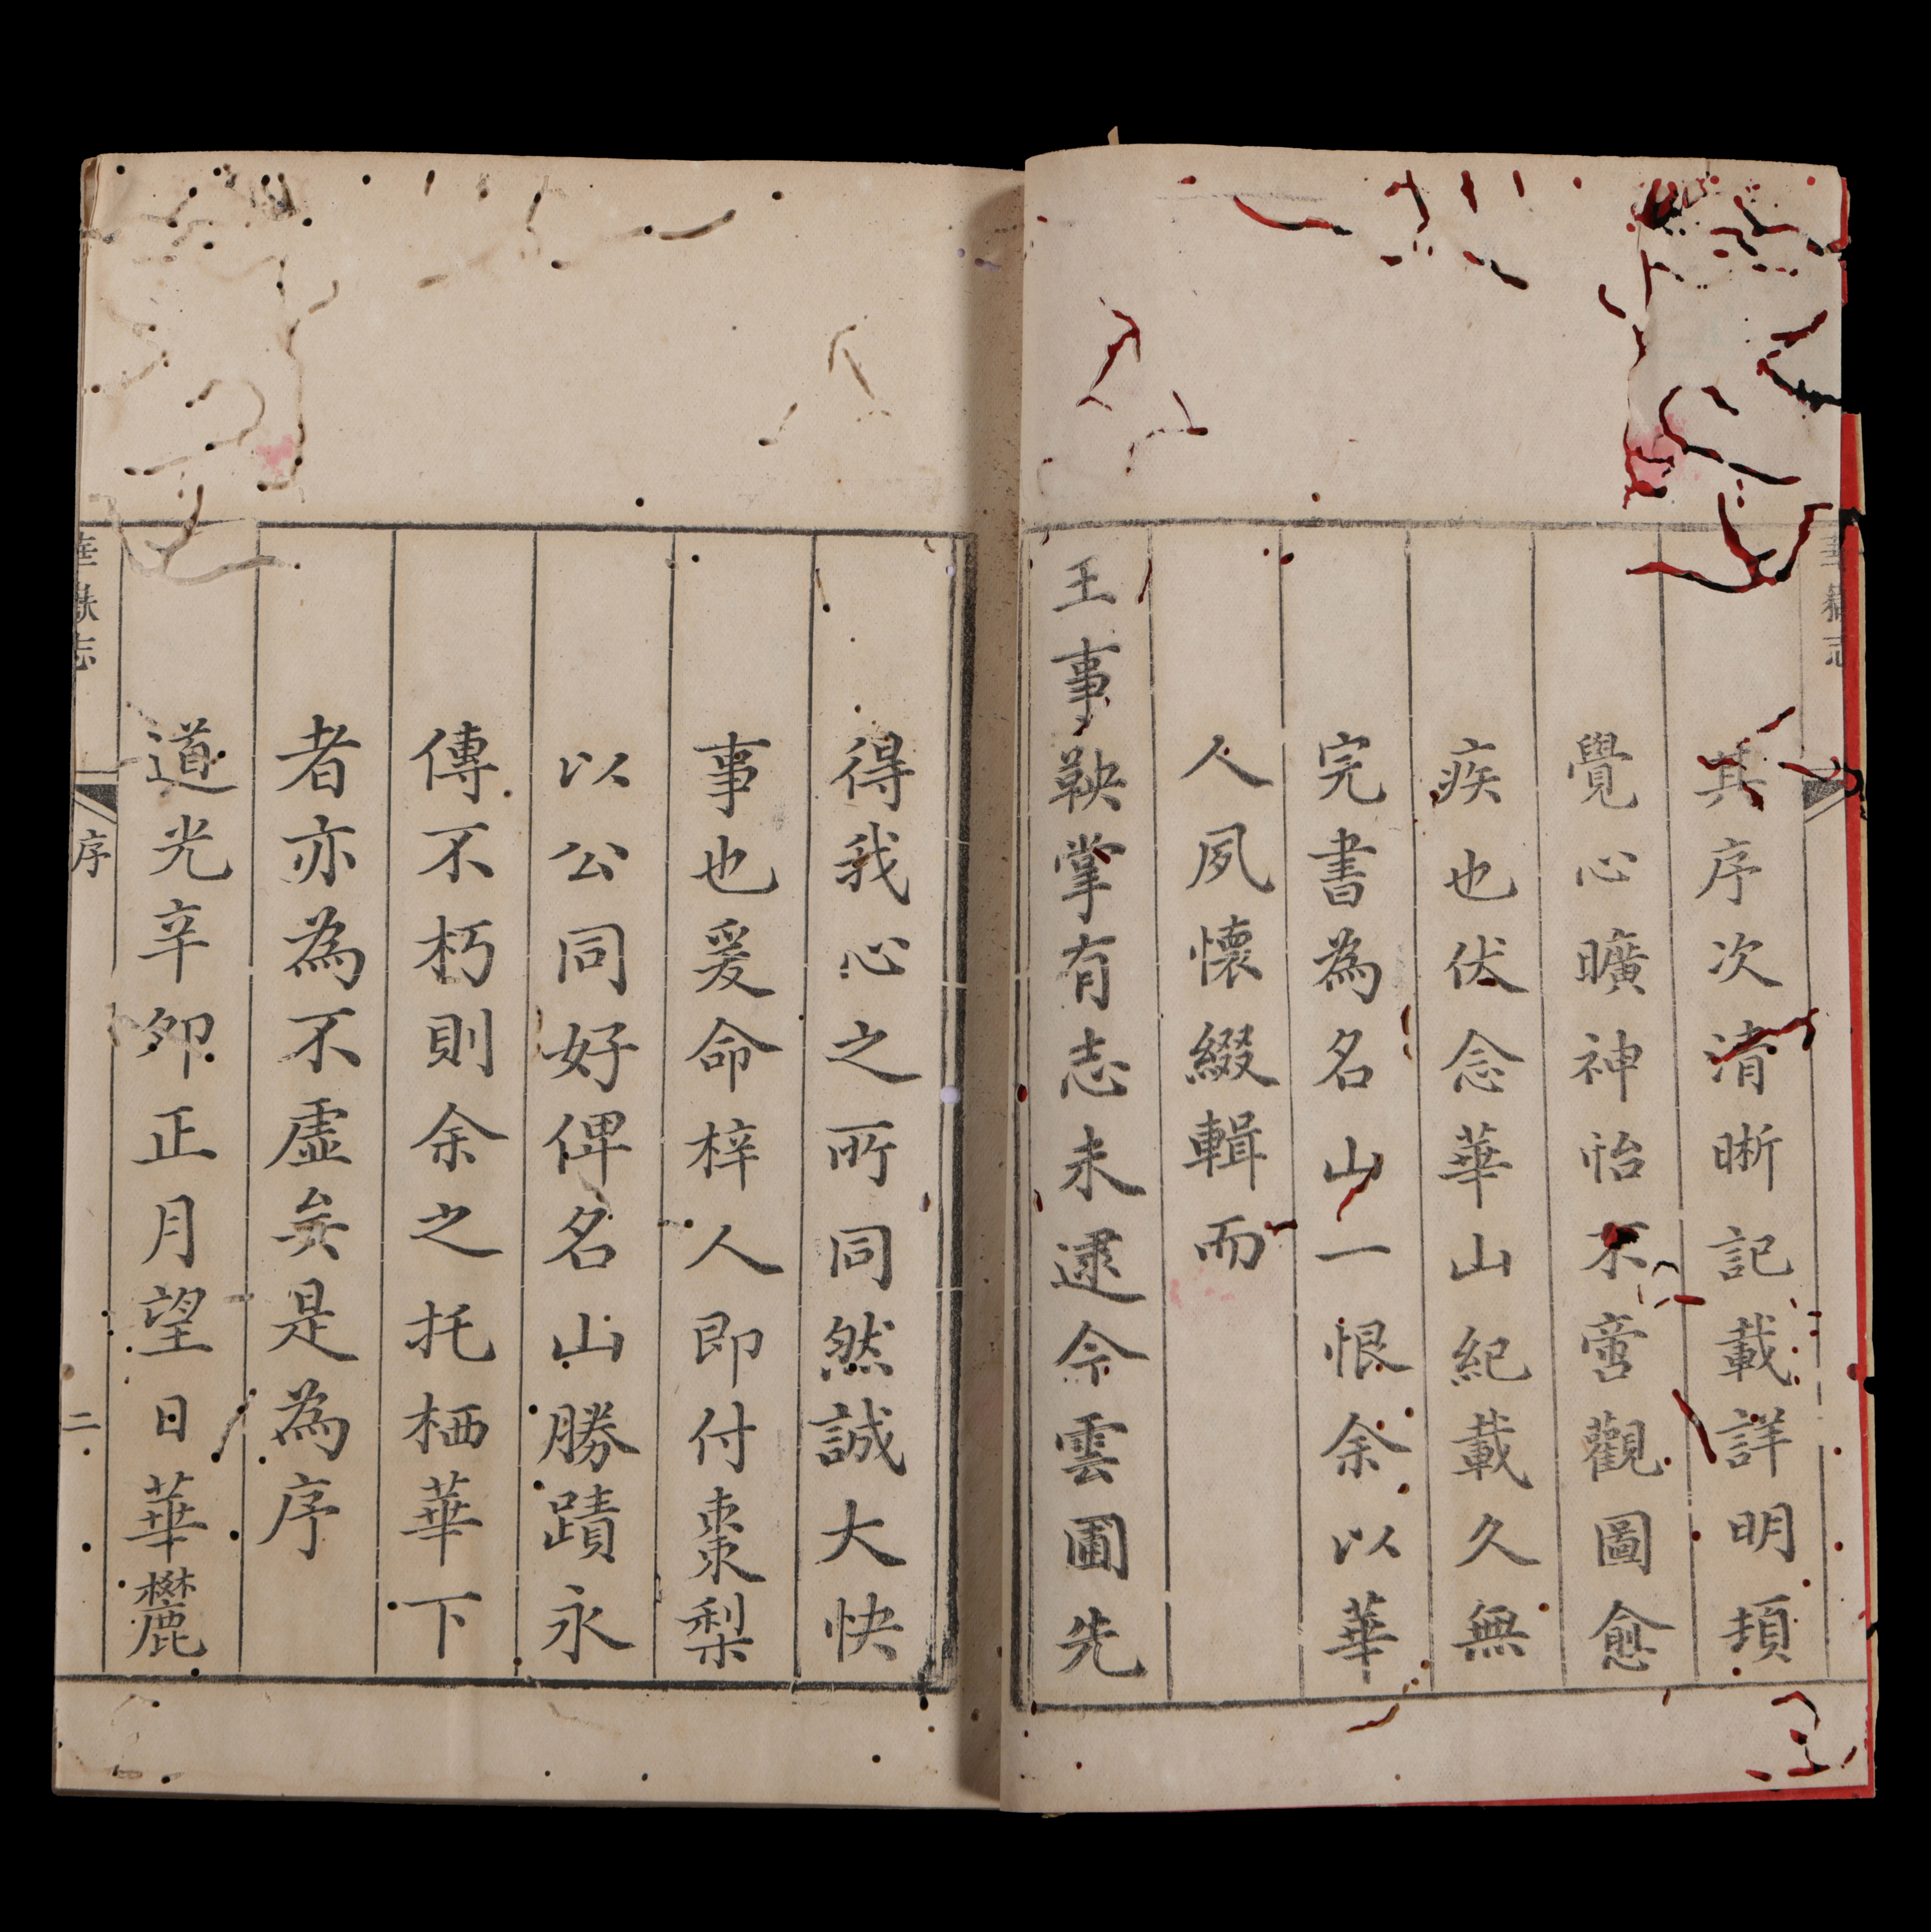 其序次清晰記載詳明頓
覺心曠神怡不啻觀圖愈
疾也伏念華山紀載久無
完書為名山一恨余以華
人夙懷綴輯而
王事鞅掌有志未逮今雲圃先
得我心之所同然誠大快
事也爰命梓人即付棗梨
以公同好俾名山勝蹟永
傳不朽則余之托栖華下
者亦為不虛矣是為序
道光辛卯正月望日華麓
華嶽志
序
二